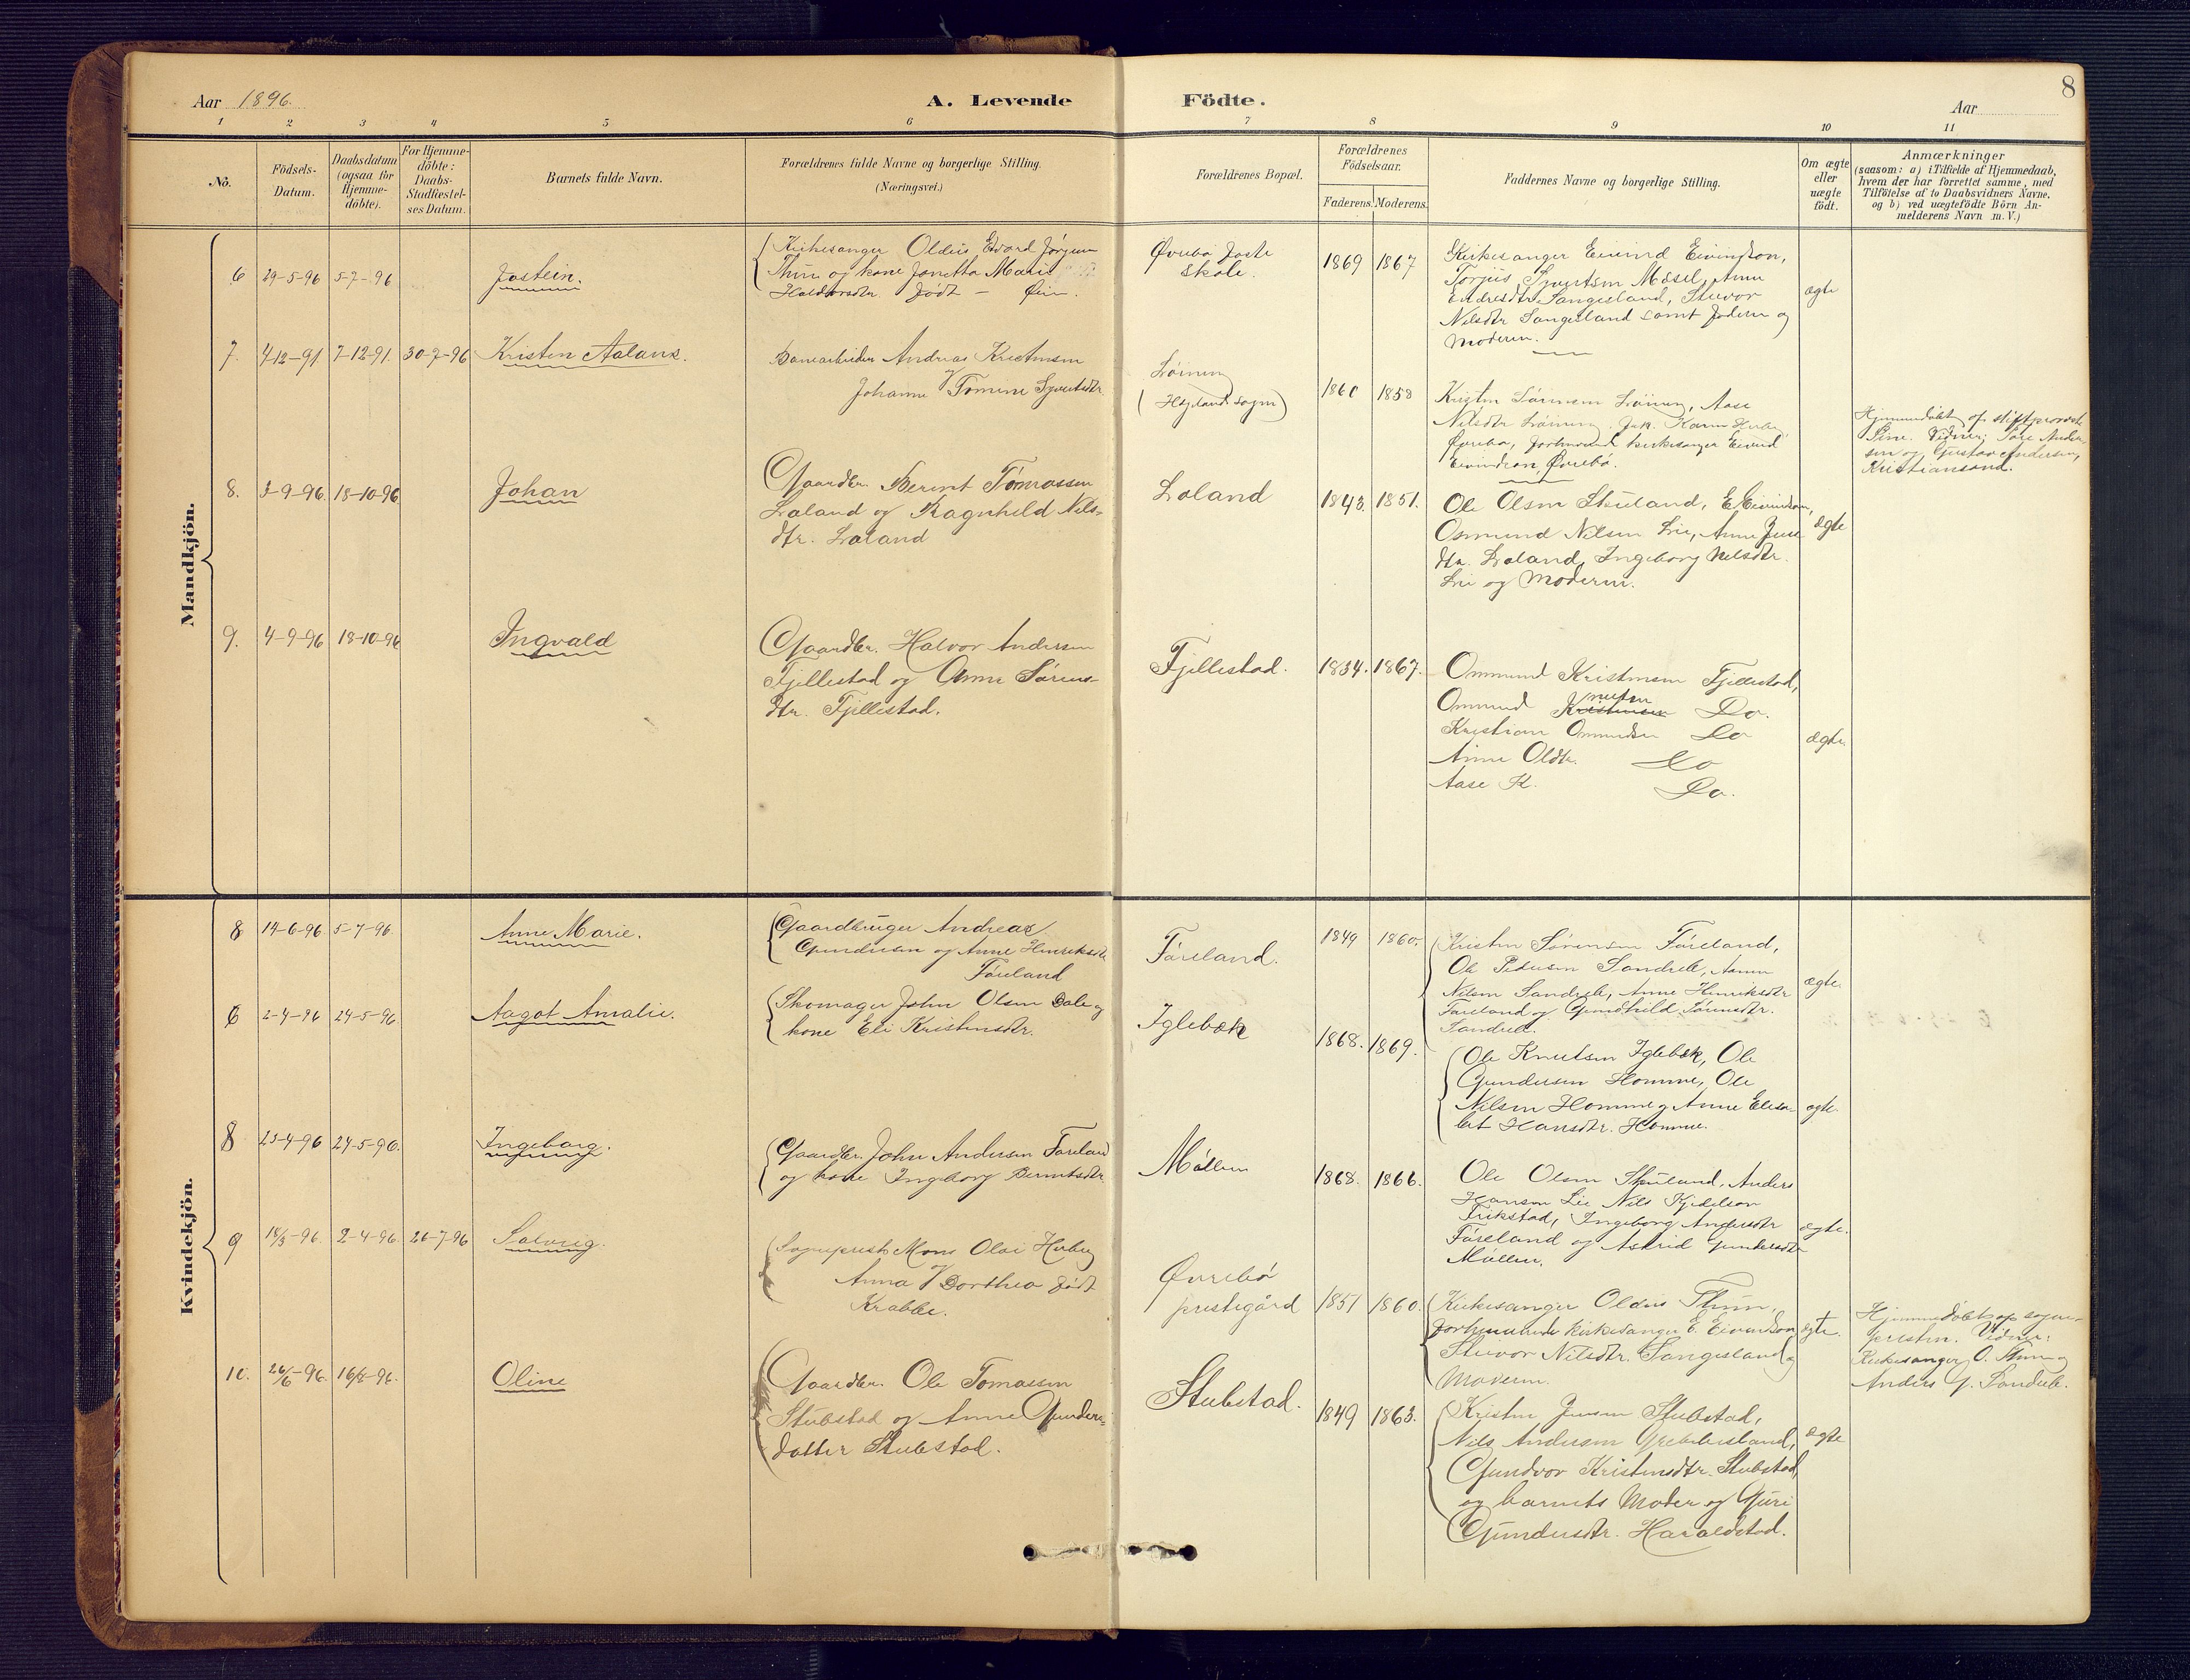 Aar 1896.
A. Levende
Födte.
Aar
8
1
2
3
4
5
6
7
8
9
10
11
No.
Födsels-
Datum.
Daabsdatum
(ogsaa for
Hjemme-
döbte).
For Hjemme-
döbte:
Daabs-
Stadfæstel-
ses Datum.
Barnets fulde Navn.
Forældrenes fulde Navne og borgerlige Stilling.
(Næringsvei.)
Forældrenes Bopæl.
Forældrenes
Födselsaar.
Faderens. Moderens.
Faddernes Navne og borgerlige Stilling.
Om ægte
eller
uægte
födt.
Anmærkninger
(saasom: a) i Tilfælde af Hjemmedaab,
hvem der har forrettet samme, med
Tilföielse af to Daabsvidners Navne,
og b) ved uægtefödte Börn An-
melderens Navn m. V.)
Mandkjön.
6 29-5-96 5-7-96 Jostein.
Kirkesanger Oldus Edvard Jørgen
Thun og kone Jonetta Marie
Haldorsdtr. født - Øen.
Øvrebø faste
skole.
1869 1867
Kirkesanger Eivind Eivindson,
Torjus Syvertsen Mosel, Anne
Endresdtr. Sangesland, Stuvor
Nilsdtr Sangesland samt faderen og
moderen.
ægte
7. 4-12-91 7-12-91. 30-7-96 Kristen Aalans.
Banearbeider Andreas Kristensen
Johanne Tomine Syvertsdtr.
Løinen
(Hægeland sogn)
1860 1858
Kristen Sørensen Løinen, Aase
Nilsdtr Løinen, frk. Karen Herbu
Øvrebø, forhenv. kirkesanger Eivind
Eivindson, Øvrebø.
Hjemmedøbt af stiftsprovst
Sire. Vidner: Tore Ander-
sen og Gustav Andersen,
Kristiansand.
8. 3-9-96. 18-10-96 Johan
Gaardbr. Berent Tomassen
Loland og Ragnhild Nils-
dtr. Loland
Loland
1843. 1851.
Ole Olsen Skuland, E. Eivindson,
Osmund Nilsen Lie, Anne Jens-
dtr. Loland, Ingeborg Nelsdtr.
Lie og Moderen.
ægte
9. 4-9-96 18-10-96 Ingvald
Gaardbr. Halvor Andersen
Fjellestad og Anne Sørens-
dtr. Fjellestad.
Fjellestad.
1834. 1867.
Ommund Kristensen Fjellestad,
Ommund Knutsen Do.
Kristian Ommundsen Do
Anne Oldtr. Do
Aase K. Do.
ægte.
Kvindekjön.
8 14-6-96. 5-7-96. Anne Marie.
Gaardbruger Andreas
Gundersen og Anne Henriksdtr
Føreland
Føreland.
1849 1860.
Kristen Sørensen Føreland,
Ole Pedersen Sandrib, Asmu
Nilsen Sandrib, Anne Henriksdtr
Føreland og Gundhild Tønnesdtr.
Sandrib.
ægte.
6 2-4-96 24-5-96. Aagot Amalie.
Skomager John Olsen Dale og
kone Eli Kristensdtr.
Iglebæk
1868. 1869.
Ole Knutsen Iglebæk, Ole
Gundersen Homme, Ole
Nilsen Homme, Anne Elisa-
bet Hansdtr. Homme.
ægte.
8 23-4-96 24-5-96. Ingeborg.
Gaardbr. John Andersen Føreland
og kone Ingeborg Berentsdtr.
Møllen
1868. 1866.
Ole Olsen Skuland, Anders
Hansen Lie, Nils Kjedelson
Frikstad, Ingeborg Andersdtr
Føreland og Astrid Gundersdtr
Møllen.
ægte.
9 18/3-96. 2-4-96. 26-7-96 Solveig.
Sogneprest Mons Olai Herbu
Anna Dorthea født
Krabbe.
Øvrebø
prestegård
1851 1860.
Kirkesanger Oldus Thun,
forhenværende kirkesanger E. Eivindson
Stuvor Nilsdtr. Sangesland og
Moderen.
ægte.
Hjemmedøbt af sogne-
presten. Vidner:
Kirkesanger O. Thun og
Anders G. Sandrib.
10. 26/6-96. 16/8-96. Oline
Gaardbr. Ole Tomassen
Stubstad og Anne Gunders-
datter Stubstad.
Stubstad.
1849 1863.
Kristen Jensen Stubstad,
Nils Andersen Grebbesland,
Gundvor Kristensdtr. Stubstad,
og barnets Moder og Guri
Gundersdtr. Haraldstad.
ægte